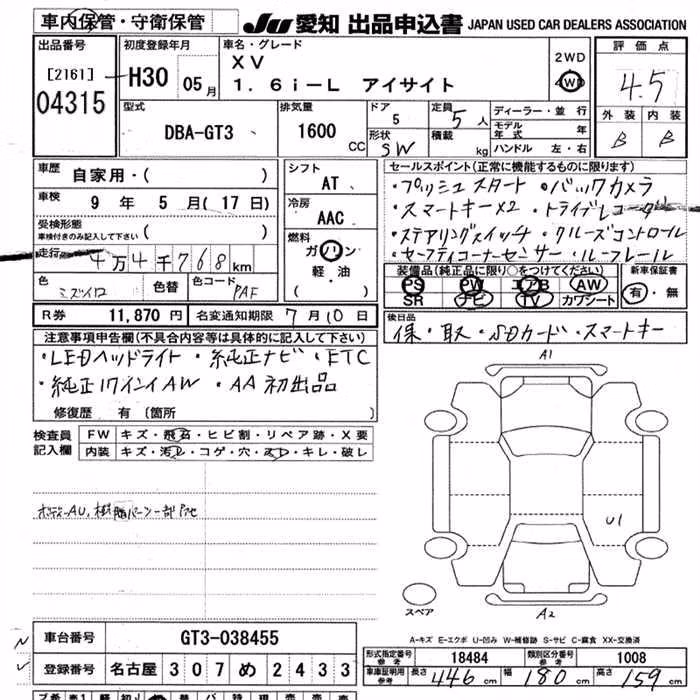 車内保管・守衛保管
JU 愛知 出品申込書 JAPAN USED CAR DEALERS ASSOCIATION
出品番号
[2161]
04315
初度登録年月
H30 05月
車名・グレード
XV
1.6i-L アイサイト
2WD
4WD
評価点
4.5
外装 内装
B B
型式
DBA-GT3
排気量
1600 CC
ドア
5
形状
SW
定員
5人
積載
kg
ディーラー・並行
モデル年式 年
ハンドル 左・右
車歴
自家用・( )
車検
9年 5月(17日)
受検形態
車検付きのみ記入して下さい ( )
走行
4万4千768km
色
ミズイロ
色替
色コード
PAF
シフト
AT
冷房
AAC
燃料
ガソリン
軽・油
( )
セールスポイント(正常に機能するものに限ります)
・プッシュスタート ・バックカメラ
・スマートキー×2 ・ドライブレコーダー
・ステアリングスイッチ ・クルーズコントロール
・セーフティコーナーセンサー ・ルーフレール
装備品(純正品に限り○をつけてください)
PS PW エアB AW
SR ナビ TV カワシート
新車保証書
有・無
R券 11,870円 名変通知期限 7月10日
後日品
保・取・SDカード・スマートキー
注意事項申告欄(不具合内容等は具体的に記入して下さい)
・LEDヘッドライト ・純正ナビ ・ETC
・純正17インチAW ・AA初出品
修復歴 有 〔箇所
検査員記入欄
FW キズ・飛石・ヒビ割・リペア跡・X要
内装 キズ・汚レ・コゲ・穴・スレ・キレ・破レ
A1
U1
スペア
A2
A-キズ E-エクボ U-凹み W-補修跡 S-サビ C-腐食 XX-交換済
車台番号 GT3-038455
登録番号 名古屋 307 め 2433
形式指定番号 参考 18484 類別区分番号 参考 1008
車庫証明用 参考 長さ 446cm 幅 180cm 高さ 159cm